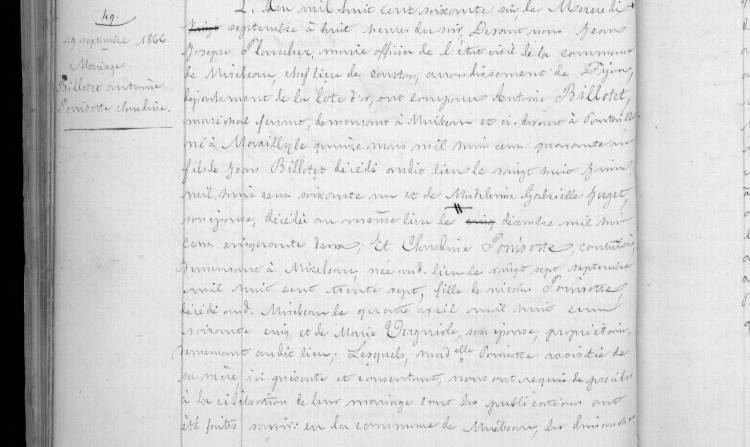 49.
19 septembre 1866
Mariage
Billotet antoine
Ponisotte claudine.
L'an mil huit cent soixante six, le Mercredi
septembre à huit heures du soir, Devant nous Jean
Joseph Plancher, maire officier de l'état civil de la commune
de Mirebeau, chef lieu de canton, arrondissement de Dijon,
département de la Côte d'or, ont comparu Antoine Billotet,
maréchal ferrant, demeurant à Mirebeau et ci-devant à
né à Marsilly le quinze mars mil huit cent quarante un
fils de Jean Billotet décédé audit lieu le vingt huit Juin
mil huit cent soixante un et de Madeleine Gabrielle
son épouse, décédée au même lieu le décembre mil huit
cent cinquante deux; Et Claudine Ponisotte, couturière,
demeurant à Mirebeau, née aud. lieu le vingt sept septembre
mil huit cent trente sept, fille de nicolas Ponisotte,
décédé aud. Mirebeau le quatre avril mil huit cent
soixante cinq et de Marie Vergniole, son épouse, propriétaire,
demeurant audit lieu; Lesquels, mad.elle Ponisotte assistée de
sa mère, ici présente et consentant, nous ont requis de procéder
à la célébration de leur mariage dont les publications ont
été faites savoir: en la commune de Mirebeau, les dimanches